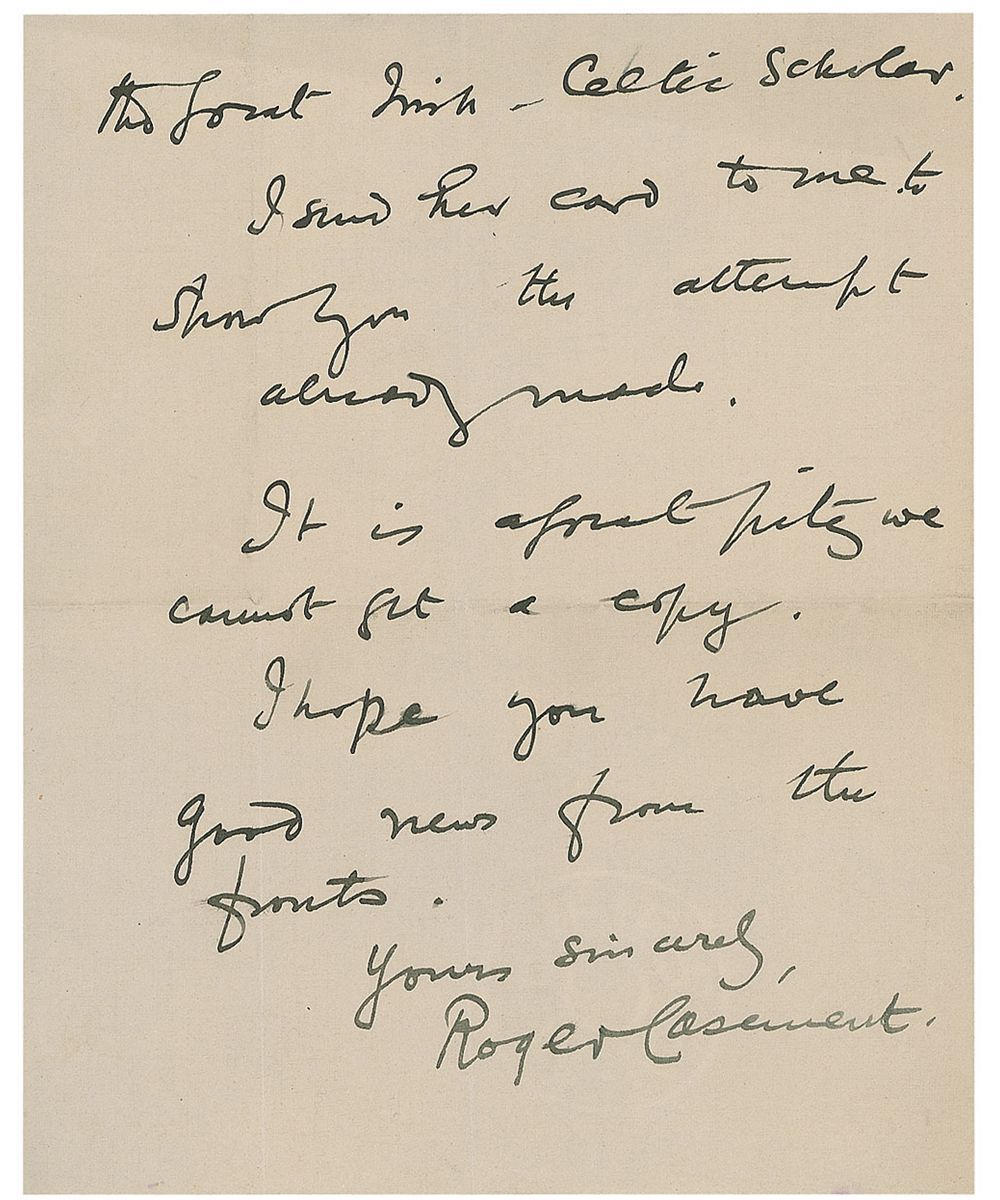 the great Irish - Celtic Scholar.
I send her card to me to
show you the attempt
already made.
It is a great pity we
cannot get a copy.
I hope you have
good news from the
fronts.
Yours sincerely,
Roger Casement.